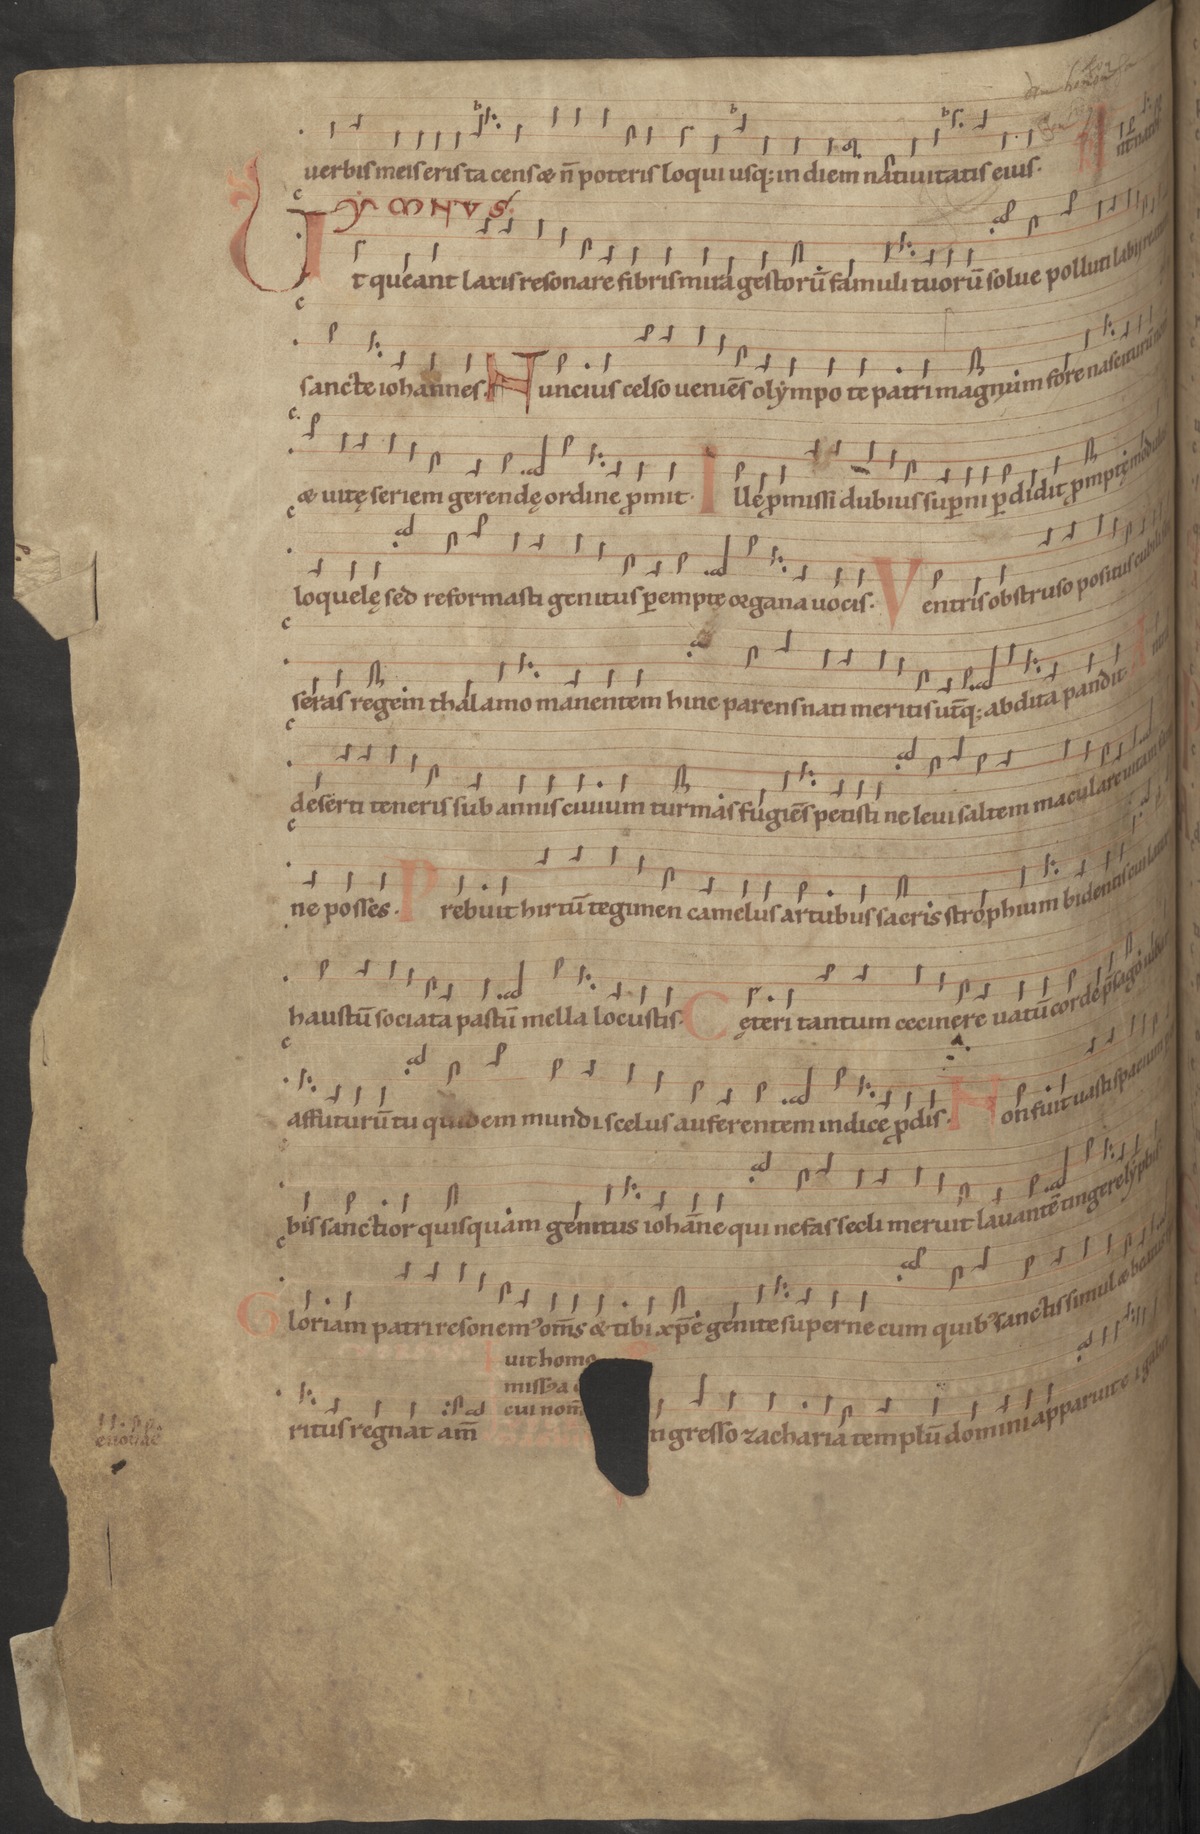 uerbis meis eris tacens & n̄ poteris loqui usq; in diem natiuitatis eius·
Ut queant laxis resonare fibris mira gestorū famuli tuorū solue polluti labii reatum
sancte iohannes. Nuncius celso ueniēs olẏmpo te patri magnum fore nasciturum
& uitę seriem gerendę ordine promit· Ille promissi dubius superni perdidit promptę modulos
loquelę sed reformasti genitus peremptę organa uocis· Ventris obstruso positus cubili
seras regem thalamo manentem hinc parens nati meritis utq; abdita pandit· A
deserti teneris sub annis ciuium turmas fugiēs petisti ne leui saltem maculare uitam
ne posses· Prebuit hirtū tegimen camelus artubus sacris strophium bidentis cui latex
haustū sociata pastū mella locustis· Cęteri tantum cecinere uatū corde presago iubar
affuturū tu quidem mundi scelus auferentem indice prodis· Non fuit uasti spacium
bis sanctior quisquam genitus iohanne qui nefas secli meruit lauantē tingere lẏmphis
Gloriam patri resonem' om̄s & tibi xp̄e genite superne cum quib' sanctis simul &
uit homo
missus a
cui nom̄
ritus regnat am̄ ngresso zacharia templū domini apparuit ei gabri
euouae